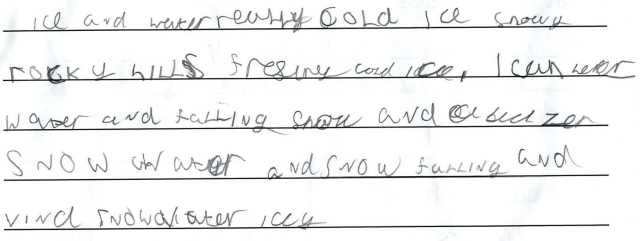 ice and water really cold ice snowy
rocky hills fresing cold ice, I can
water and falling snow and
snow water and snow falling and
vind snow water icey